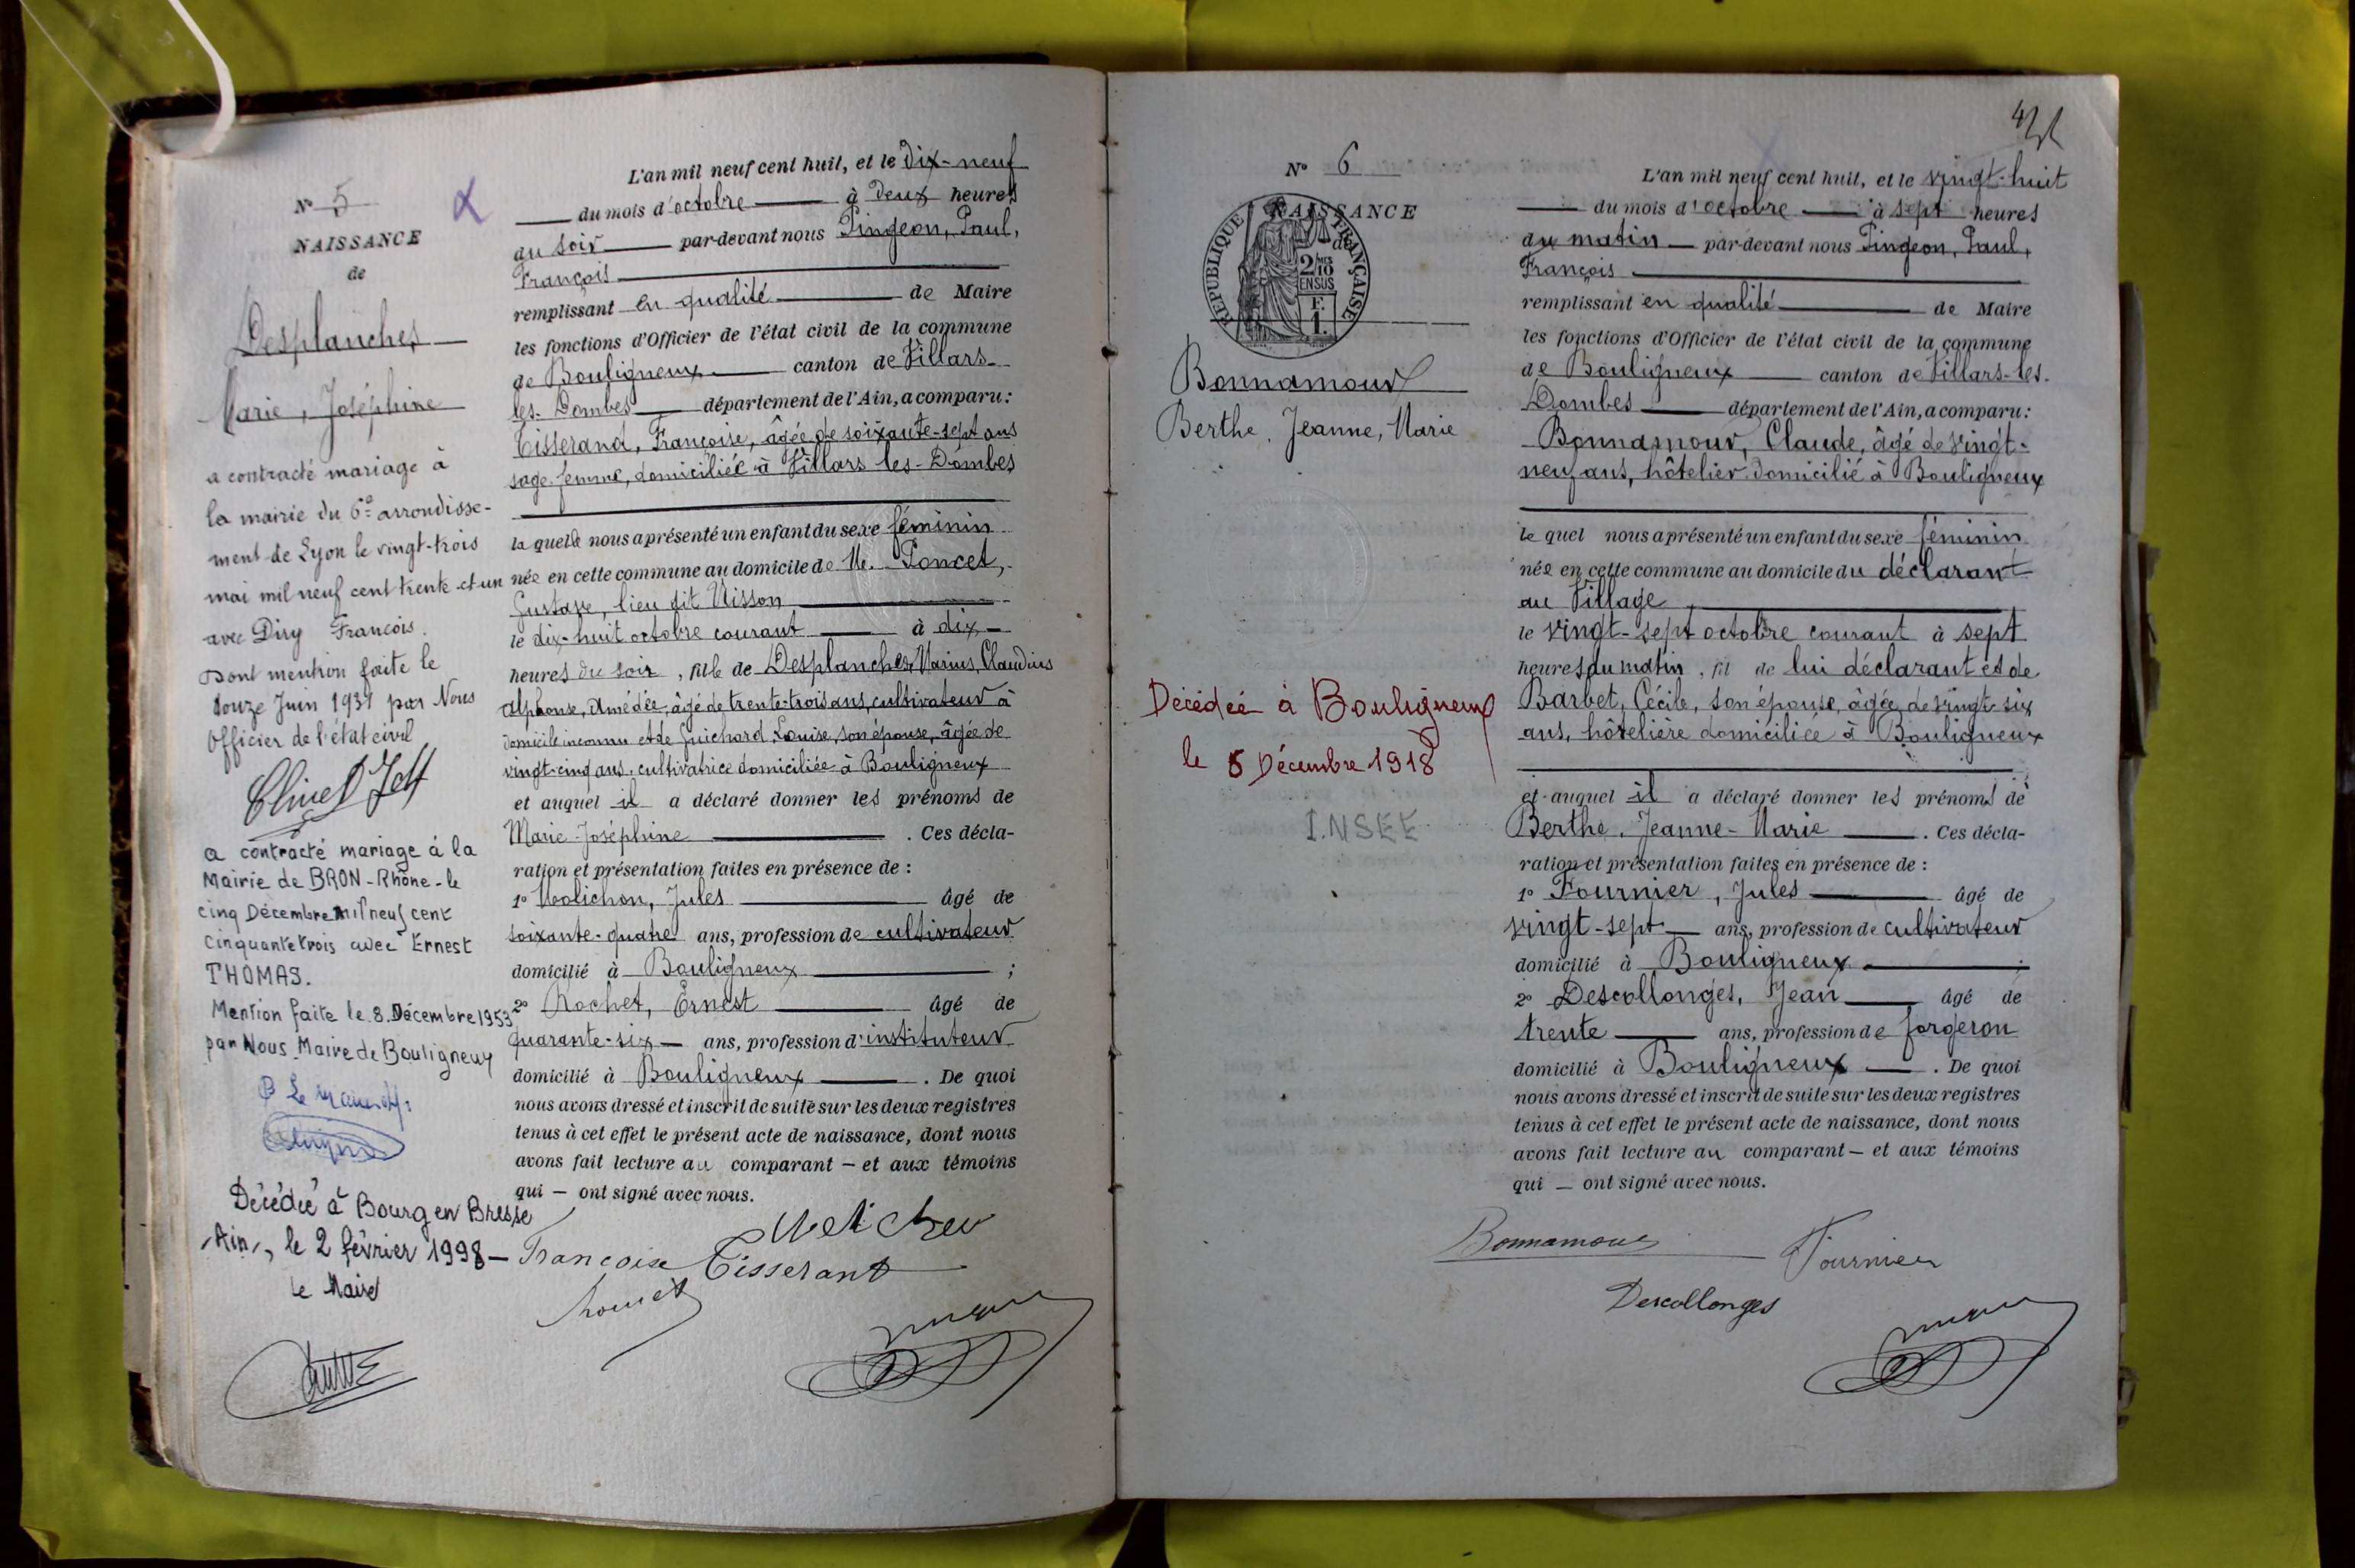 N° 5
NAISSANCE
de
Desplanches
Marie, Joséphine
a contracté mariage à
la mairie du 6e arrondisse-
ment de Lyon le vingt-trois
mai mil neuf cent trente et un
avec Diry François.
Dont mention faite le
douze Juin 1931 par Nous
Officier de l'état civil
a contracté mariage à la
Mairie de BRON - Rhône - le
cinq Décembre mil neuf cent
cinquante trois avec Ernest
THOMAS.
Mention faite le 8 Décembre 1953
par Nous Maire de Bouligneux
Décédée à Bourg en Bresse
/Ain/, le 2 février 1998 -
le Maire
L'an mil neuf cent huit, et le dix-neuf
du mois d'octobre à deux heures
du soir par-devant nous Pingeon, Paul,
François
remplissant en qualité de Maire
les fonctions d'Officier de l'état civil de la commune
de Bouligneux canton de Villars-
les-Dombes département de l'Ain, a comparu :
Tisserand, Françoise, âgée de soixante-sept ans
sage-femme, domiciliée à Villars les-Dombes
la quelle nous a présenté un enfant du sexe féminin
née en cette commune au domicile de M. Poncet,
Gustave, lieu dit Nisson
le dix-huit octobre courant à dix
heures du soir, fille de Desplanches, Marius, Claudius
Alphonse, Amédée, âgé de trente-trois ans, cultivateur à
domicile inconnu et de Guichard, Louise, son épouse, âgée de
vingt-cinq ans, cultivatrice domiciliée à Bouligneux
et auquel il a déclaré donner les prénoms de
Marie-Joséphine . Ces décla-
ration et présentation faites en présence de :
1° Molichon, Jules âgé de
soixante-quatre ans, profession de cultivateur
domicilié à Bouligneux ;
2° Rochet, Ernest âgé de
quarante-six ans, profession d'instituteur
domicilié à Bouligneux . De quoi
nous avons dressé et inscrit de suite sur les deux registres
tenus à cet effet le présent acte de naissance, dont nous
avons fait lecture au comparant - et aux témoins
qui - ont signé avec nous.
Françoise Tisserant
42
N° 6
NAISSANCE
de
REPUBLIQUE FRANÇAISE
2/10
EN SUS
F.
1.
Bonnamour
Berthe, Jeanne, Marie
Décédée à Bouligneux
le 5 Décembre 1918
INSEE
L'an mil neuf cent huit, et le vingt-huit
du mois d'octobre à sept heures
du matin par-devant nous Pingeon, Paul,
François
remplissant en qualité de Maire
les fonctions d'Officier de l'état civil de la commune
de Bouligneux canton de Villars-les-
Dombes département de l'Ain, a comparu :
Bonnamour, Claude, âgé de vingt-
neuf ans, hôtelier domicilié à Bouligneux
le quel nous a présenté un enfant du sexe féminin
née en cette commune au domicile du déclarant
au Village
le vingt-sept octobre courant à sept
heures du matin, fil de lui déclarant et de
Barbet, Cécile, son épouse, âgée de vingt-six
ans, hôtelière domiciliée à Bouligneux
et auquel il a déclaré donner les prénoms de
Berthe, Jeanne-Marie . Ces décla-
ration et présentation faites en présence de :
1° Fournier, Jules âgé de
vingt-sept ans, profession de cultivateur
domicilié à Bouligneux ;
2° Descollonges, Jean âgé de
trente ans, profession de forgeron
domicilié à Bouligneux . De quoi
nous avons dressé et inscrit de suite sur les deux registres
tenus à cet effet le présent acte de naissance, dont nous
avons fait lecture au comparant - et aux témoins
qui - ont signé avec nous.
Bonnamour Fournier
Descollonges